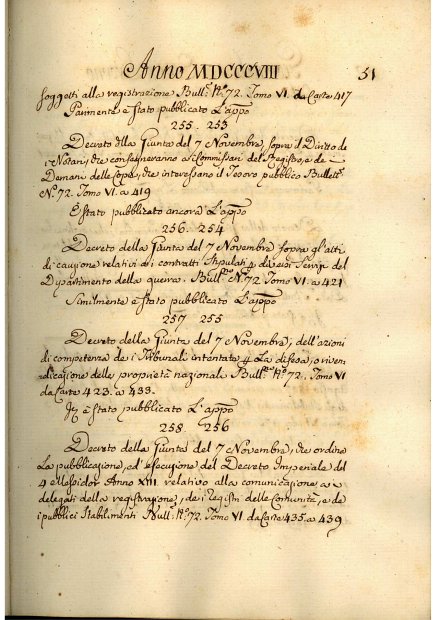 Anno MDCCCVIII 51
soggetti alla registrazione Bull.º Nº 72. Tomo VI. da Carte 417
Parimente è stato pubblicato L'appº
255. 253
Decreto della Giunta del 7 Novembre, sopra il Diritto de
i Notari, che consegneranno a' Commissari del Registro, e de
Demani delle Copie, che interessano il Tesoro pubblico Bullettº
Nº 72. Tomo VI. a 419
È stato pubblicato ancora L'appº
256. 254
Decreto della Giunta del 7 Novembre sopra gl'atti
di cauzione relativi ai contratti stipulati p diversi Servizi del
Dipartimento della guerra. Bullº Nº 72 Tomo VI. a 421
Similmente è stato pubblicato L'appº
257 255
Decreto della Giunta del 7 Novembre, dell'azioni
di competenza de i Tribunali intentate p La difesa, o riven
dicazione delle proprietà nazionali Bullº Nº 72. Tomo VI
da Carte 423. a 433.
È stato pubblicato L'appº
258. 256
Decreto della Giunta del 7 Novembre, che ordina
La pubblicazione, ed'esecuzione del Decreto Imperiale del
4 Messidor Anno XIII relativo alla comunicazione, a i
delegati della registrazione, de i Registri delle Comunità, e de
i pubblici Stabilimenti Bull: Nº 72. Tomo VI da Carte 435. a 439